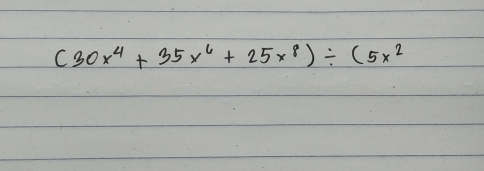 (30x⁴ + 35x⁶ + 25x⁸) ÷ (5x²